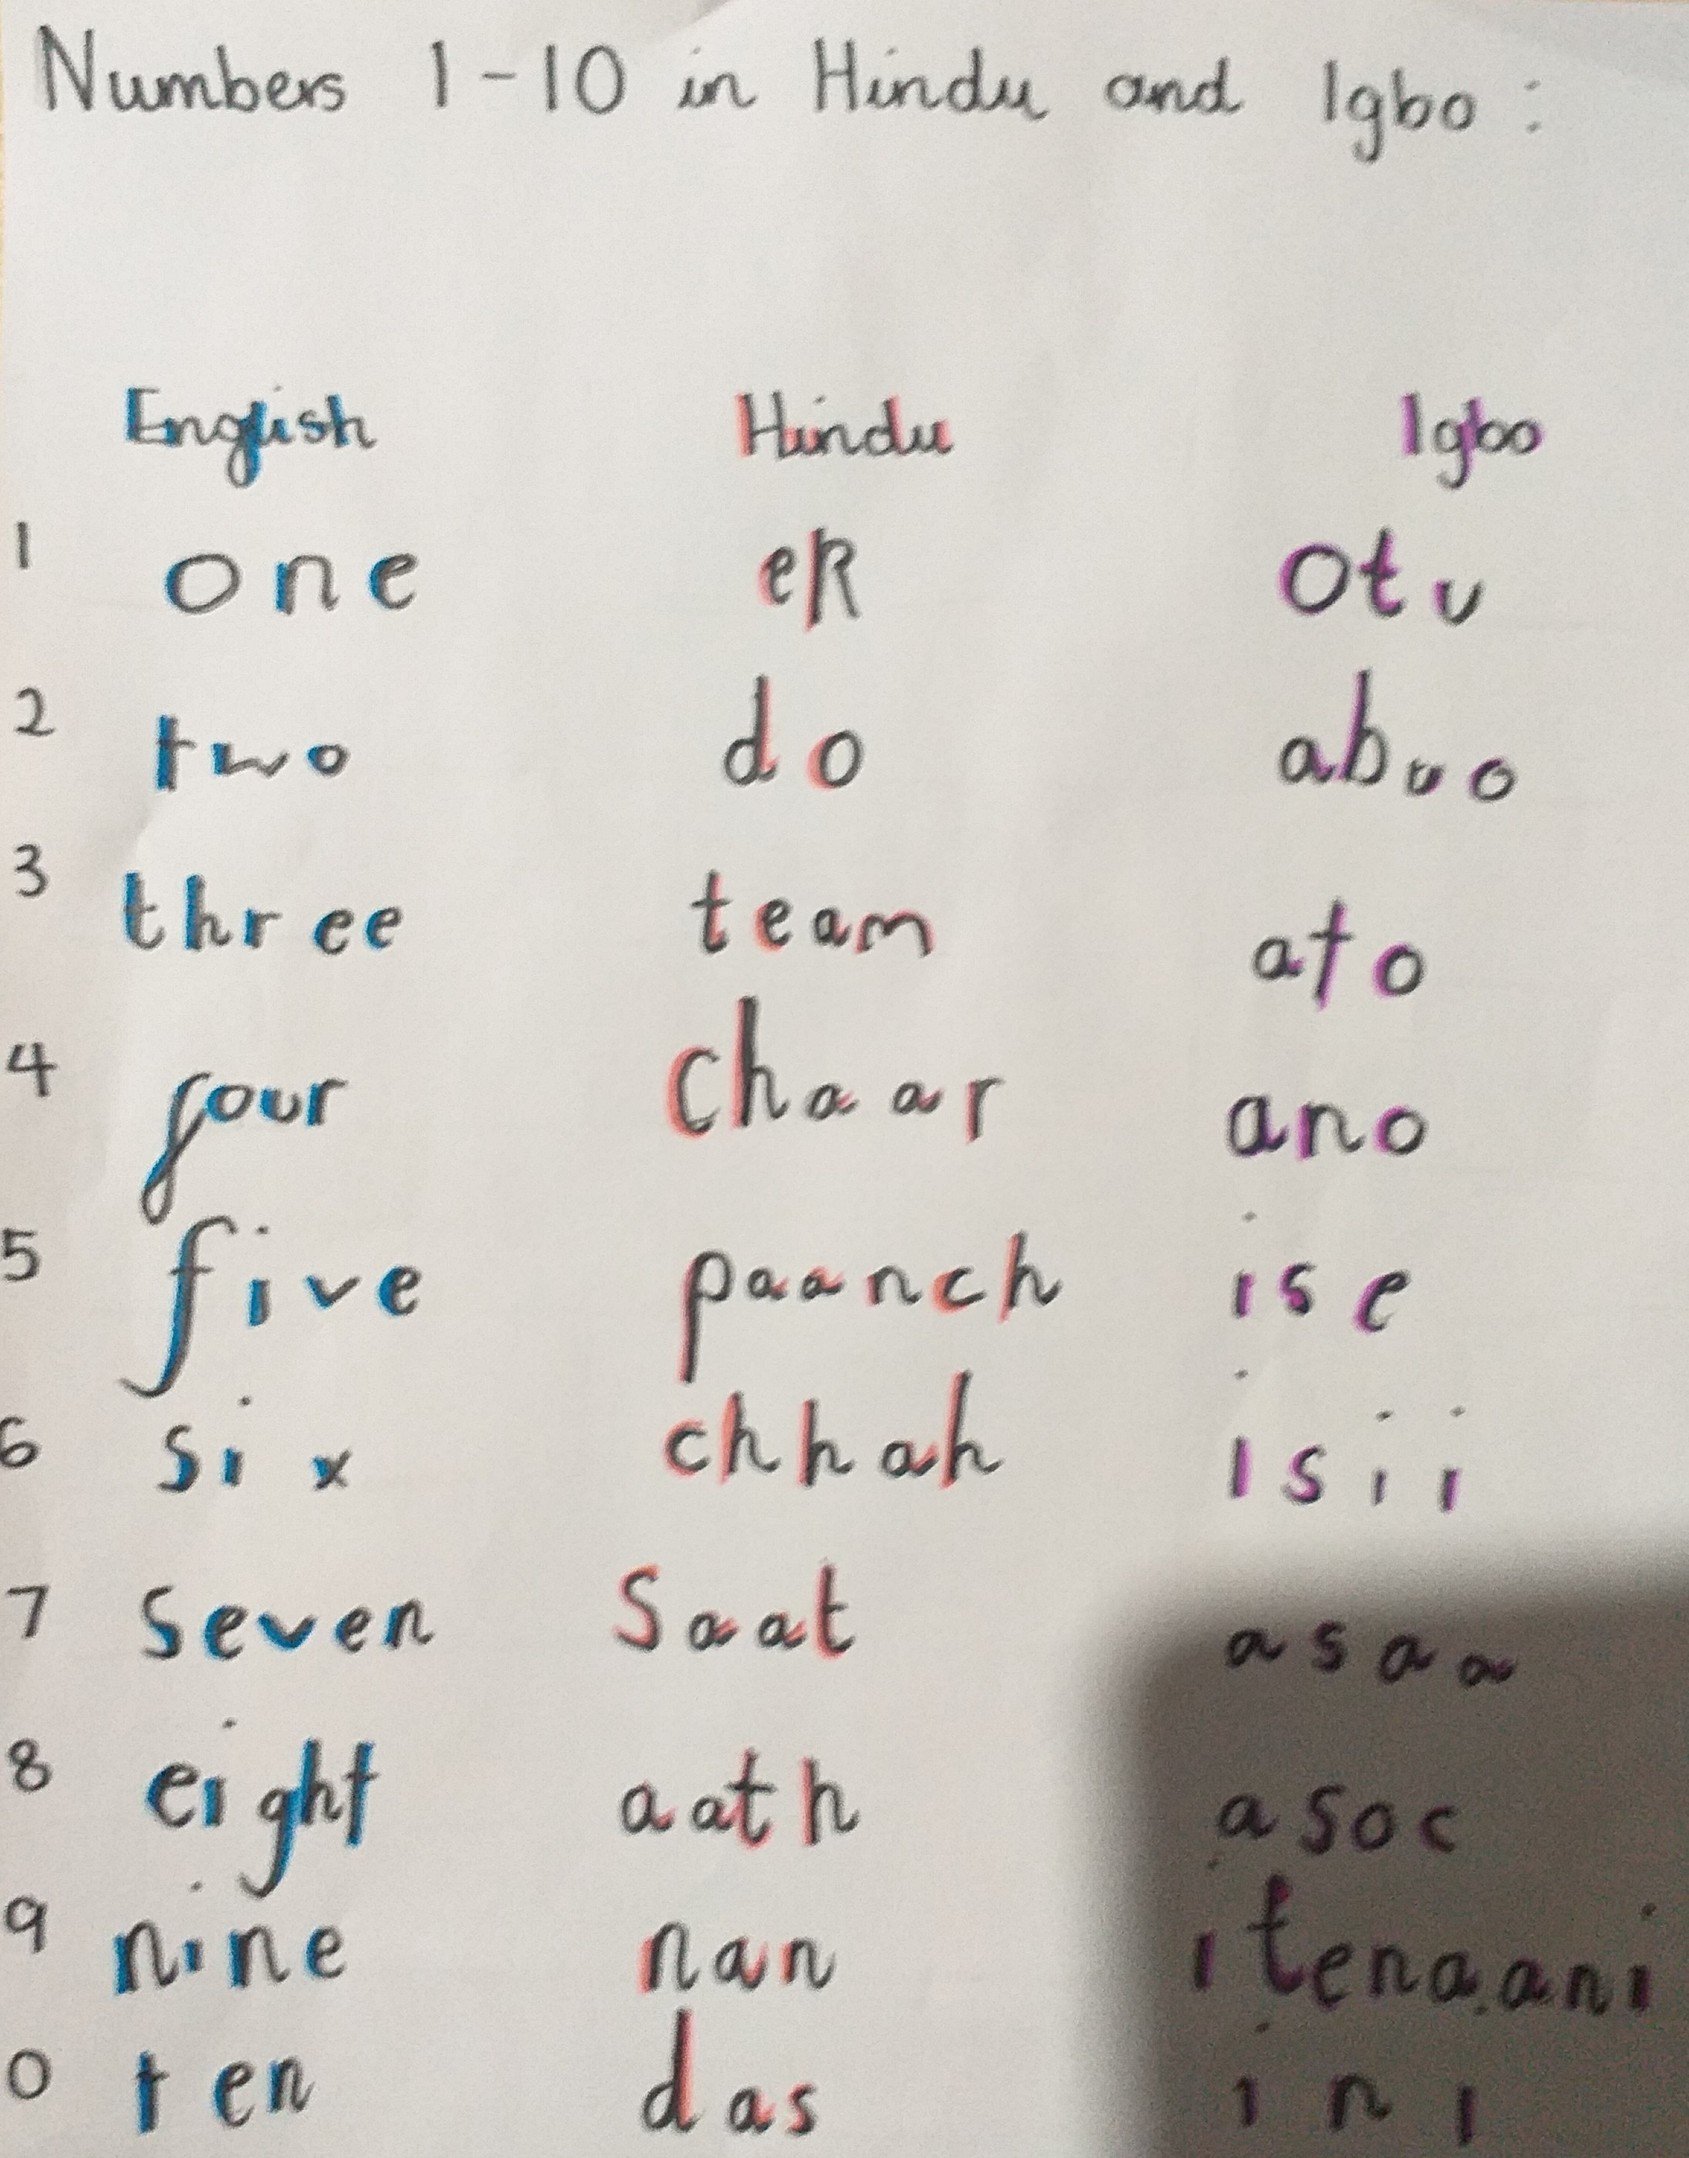 Numbers 1-10 in Hindu and Igbo:
English Hindu Igbo
1 one ek otu
2 two do abuo
3 three team ato
4 four Chaar ano
5 five paanch ise
6 six chhah isii
7 seven Saat asaa
8 eight aath asoc
9 nine nan itenaani
0 ten das ini